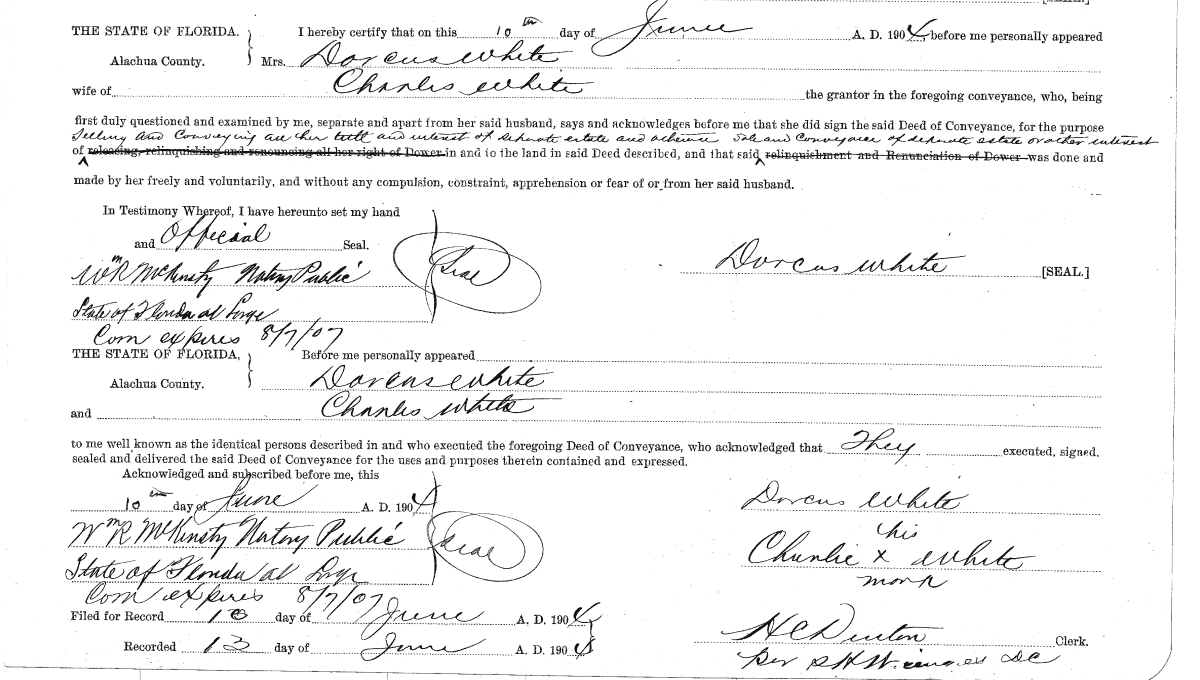 [SEAL.]
THE STATE OF FLORIDA. I hereby certify that on this 10th day of June A. D. 1904 before me personally appeared
Alachua County. Mrs. Dorcus White
wife of Charles White the grantor in the foregoing conveyance, who, being
first duly questioned and examined by me, separate and apart from her said husband, says and acknowledges before me that she did sign the said Deed of Conveyance, for the purpose
Selling and Conveying all her title and interest of separate estate and otherwise Sale and Conveyance of separate estate or other interest
of releasing, relinquishing and renouncing all her right of Dower in and to the land in said Deed described, and that said relinquishment and Renunciation of Dower was done and
made by her freely and voluntarily, and without any compulsion, constraint, apprehension or fear of or from her said husband.
In Testimony Whereof, I have hereunto set my hand
and Official Seal.
Seal
Dorcus White [SEAL.]
Wm R McKinsty Notary Public
State of Florida at Large
Com expires 8/7/07
THE STATE OF FLORIDA, Before me personally appeared
Alachua County. Dorcus White
and Charles White
to me well known as the identical persons described in and who executed the foregoing Deed of Conveyance, who acknowledged that They executed, signed,
sealed and delivered the said Deed of Conveyance for the uses and purposes therein contained and expressed.
Acknowledged and subscribed before me, this
10th day of June A. D. 1904
Dorcus White
Wm R McKinsty Notary Public
Seal
his
Charlie x White
mark
State of Florida at Large
Com expires 8/7/07
Filed for Record 10 day of June A. D. 1904
H C Denton Clerk.
Recorded 13 day of June A. D. 1904
Per DC